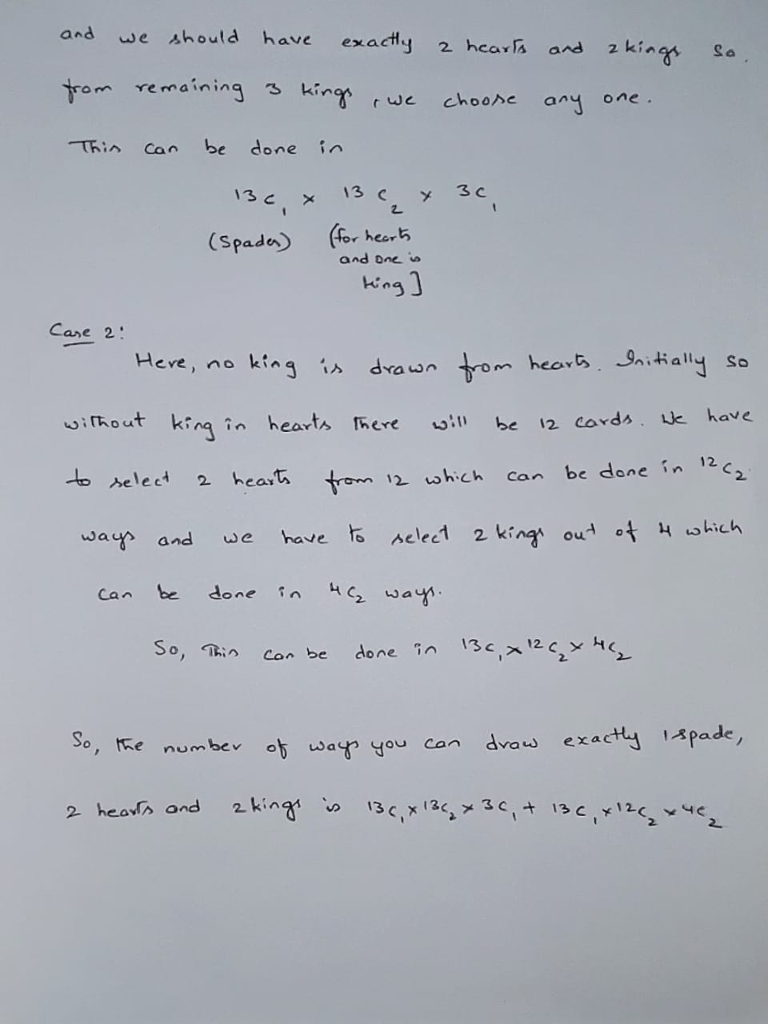 and we should have exactly 2 hearts and 2 kings so.
from remaining 3 kings, we choose any one.
This can be done in
13C₁ × 13C₂ × 3C₁
(Spades) (for hearts
and one is
king]
Case 2:
Here, no king is drawn from hearts. Initially so
without king in hearts there will be 12 cards. We have
to select 2 hearts from 12 which can be done in 12C₂
ways and we have to select 2 kings out of 4 which
can be done in 4C₂ ways.
So, This can be done in 13C₁ × 12C₂ × 4C₂
So, the number of ways you can draw exactly 1 spade,
2 hearts and 2 kings is 13C₁ × 13C₂ × 3C₁ + 13C₁ × 12C₂ × 4C₂